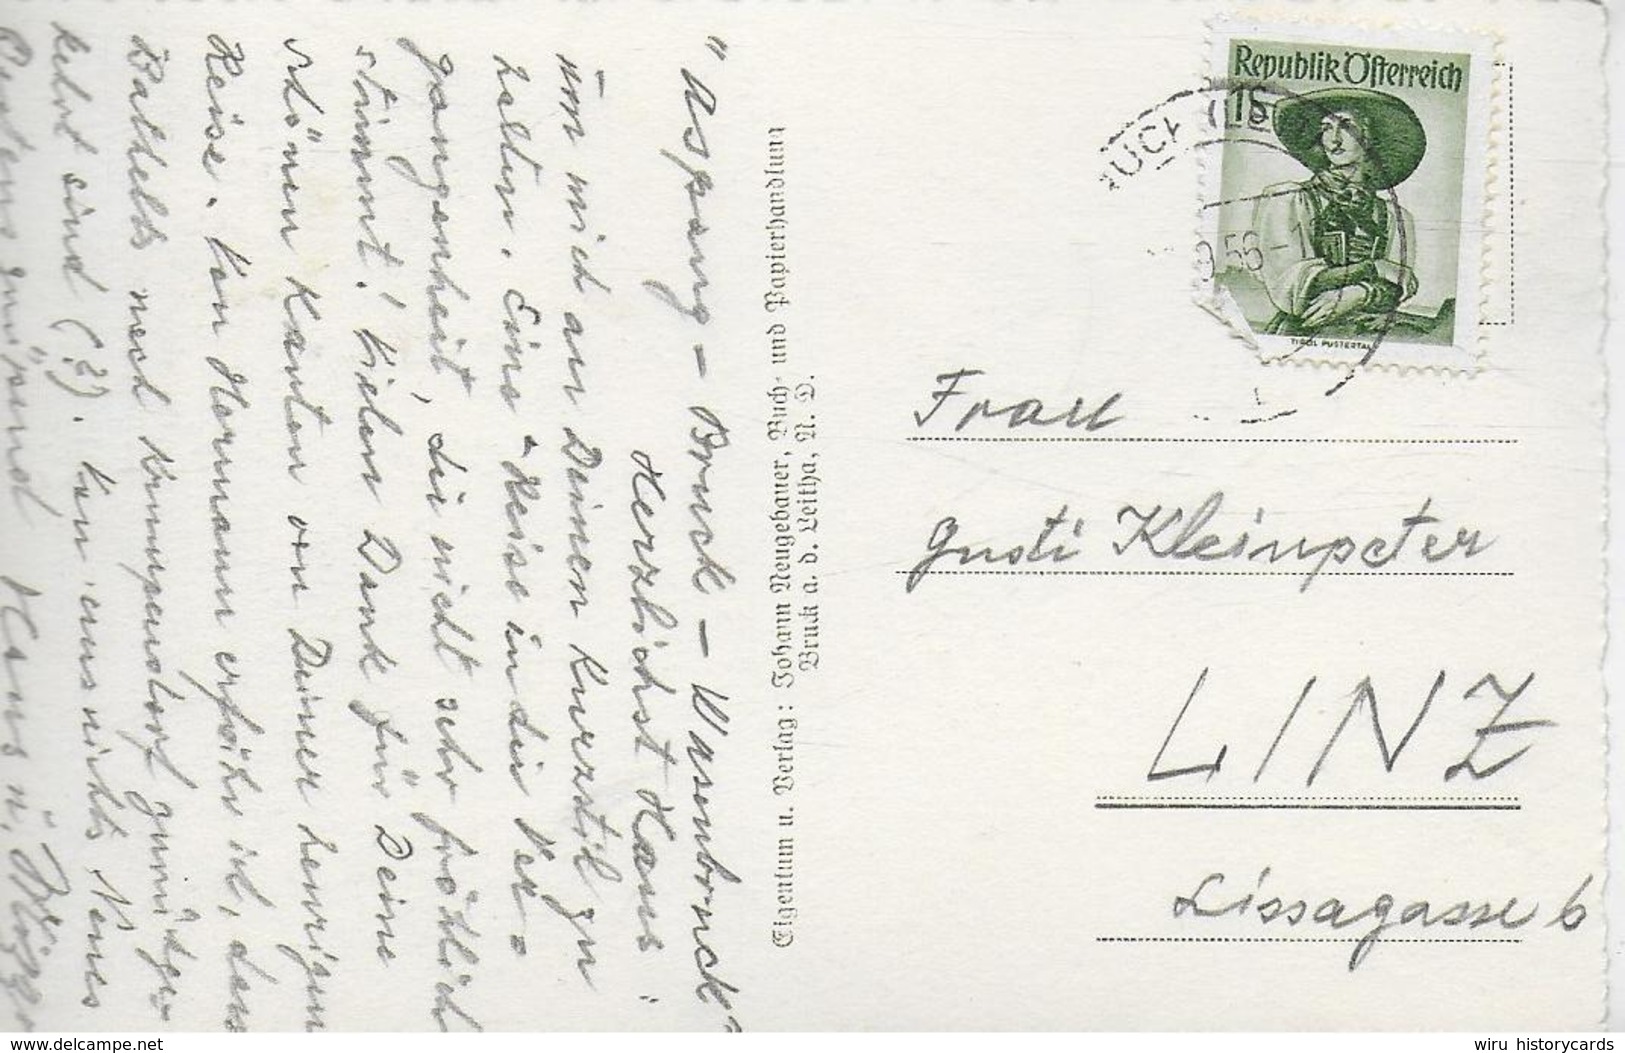 "Aspang – Bruck – Wasenbruck"
Herzlichst Hans
Um mich an Deinen Kurzstil zu
halten. Eine "Reise in die Ver-
gangenheit, die nicht sehr fröhlich
stimmt! Vielen Dank für Deine
schönen Karten von Deiner heurigen
Reise. Von Hermann erfahr ich, dass
nach Krumpendorf zurückge-
kehrt sind (?). Von uns nichts Neues
Hans u.
Eigentum u. Verlag: Johann Neugebauer, Buch- und Papierhandlung
Bruck a. d. Leitha, N. D.
Republik Österreich
TIROL PUSTERTAL
56
Frau
Gusti Kleinpeter
LINZ
Lissagasse 6
www.delcampe.net
wiru historycards